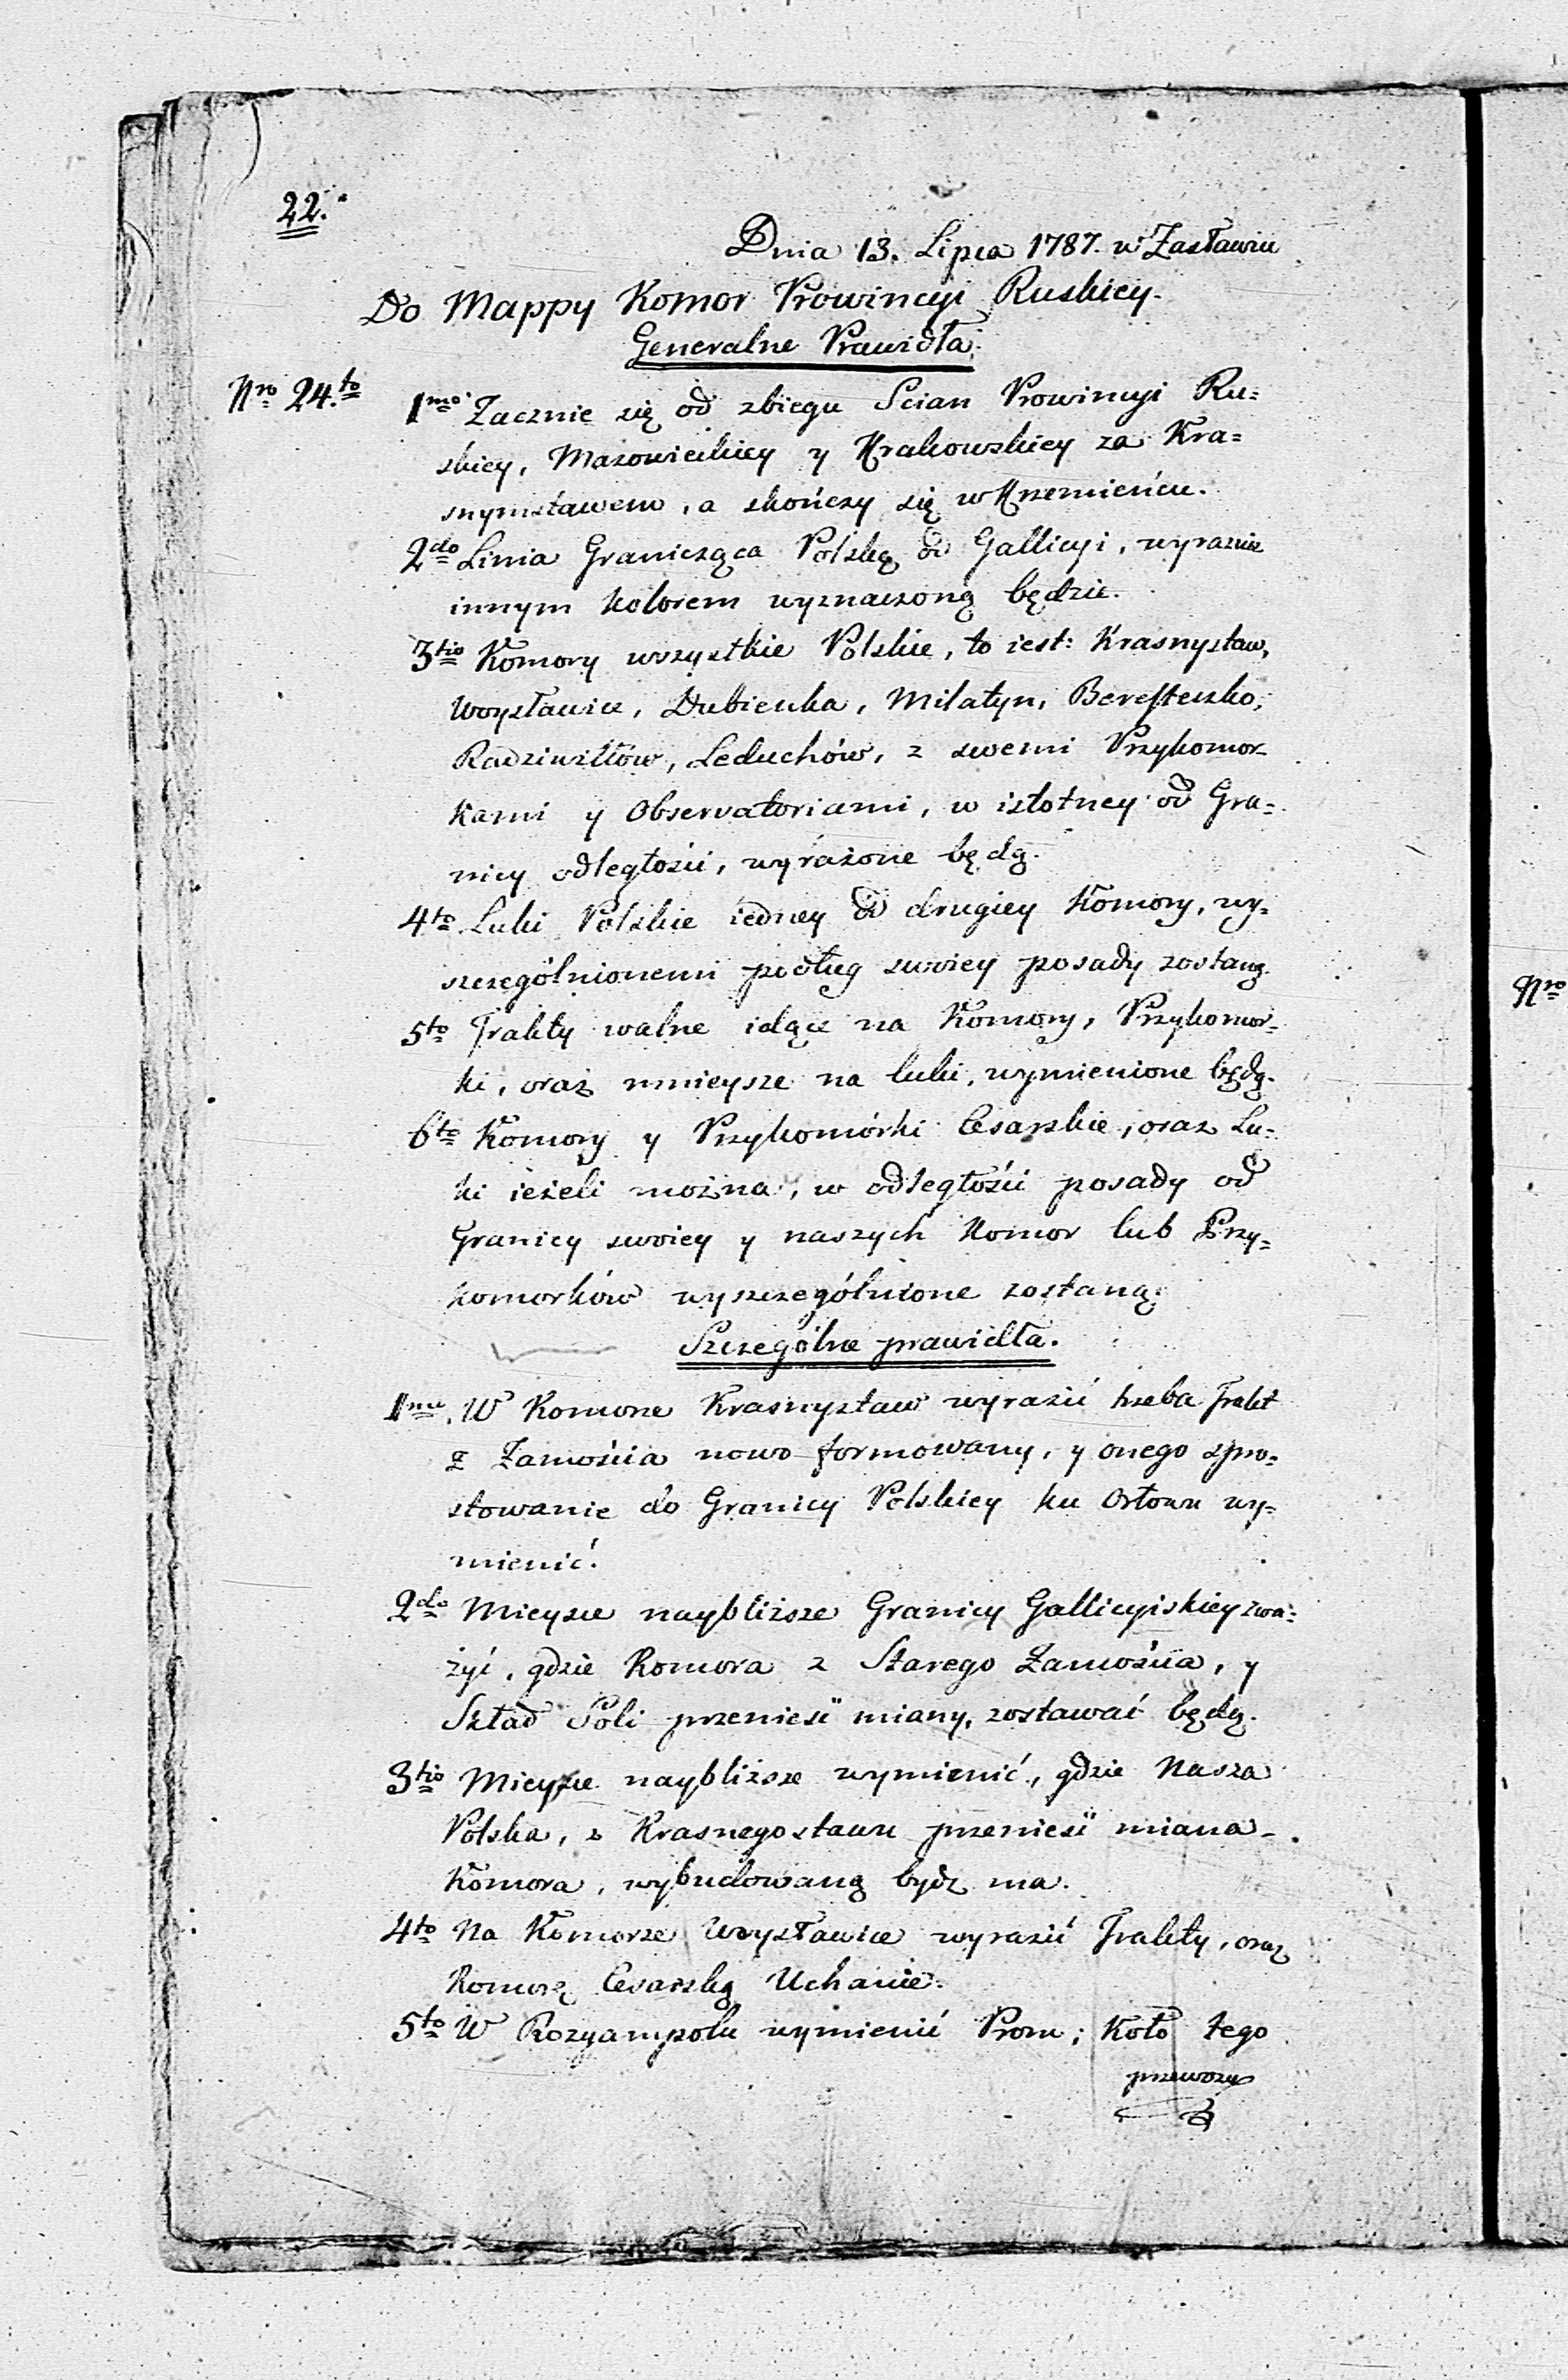 22.
Dnia 13. Lipca 1787. w Zasławiu
Do Mappy Komor Prowincyi Ruskiey.
Generalne Prawidła.
Nro 24.to
1mo Zacznie się od zbiegu Scian Prowincyi Ru=
skiey, Mazowieckiey y Krakowskiey za Kra=
snymstawem, a skończy się w Krzemieńcu.
2do Linia Granicząca Polskę od Gallicyi, wyraznie
innym kolorem wyznaczoną będzie.
3tio Komory wszystkie Polskie, to iest: Krasnystaw,
Woysławice, Dubienka, Milatyn, Beresteczko,
Radziwiłłów, Leduchów, z swemi Przykomor-
kami y Observatoriami, w istotney od Gra=
nicy odległości, wyrażone będą.
4to Luki Polskie iedney od drugiey Komory, wy=
szczególnionemi podług swoiey posady zostaną.
5to Trakty walne idące na Komory, Przykomor-
ki, oraz mnieysze na luki, wymienione będą.
6to Komory y Przykomórki Cesarskie, oraz Lu=
ki ieżeli można, w odległości posady od
Granicy swoiey y naszych Komor lub Przy=
komorków wyszczególnione zostaną.
Szczególne prawidła.
1mo. W Komorze Krasnystaw wyrazić trzeba Trakt
z Zamościa nowo formowany, y onego spro=
stowanie do Granicy Polskiey ku Orłowu wy=
mienić.
2do Mieysce naybliższe Granicy Gallicyiskiey zwa=
żyć, gdzie Komora z Starego Zamościa, y
Skład Soli przenieść miany, zostawać będą.
3tio Mieysce naybliższe wymienić, gdzie Nasza
Polska, z Krasnegostawu przenieść miana
Komora, wybudowaną bydz ma.
4to Na Komorze Woysławice wyrazić Trakty, oraz
Komorę Cesarską Uchanie.
5to W Rozyampolu wymienić Prom; Koło tego
przewozu
Nro